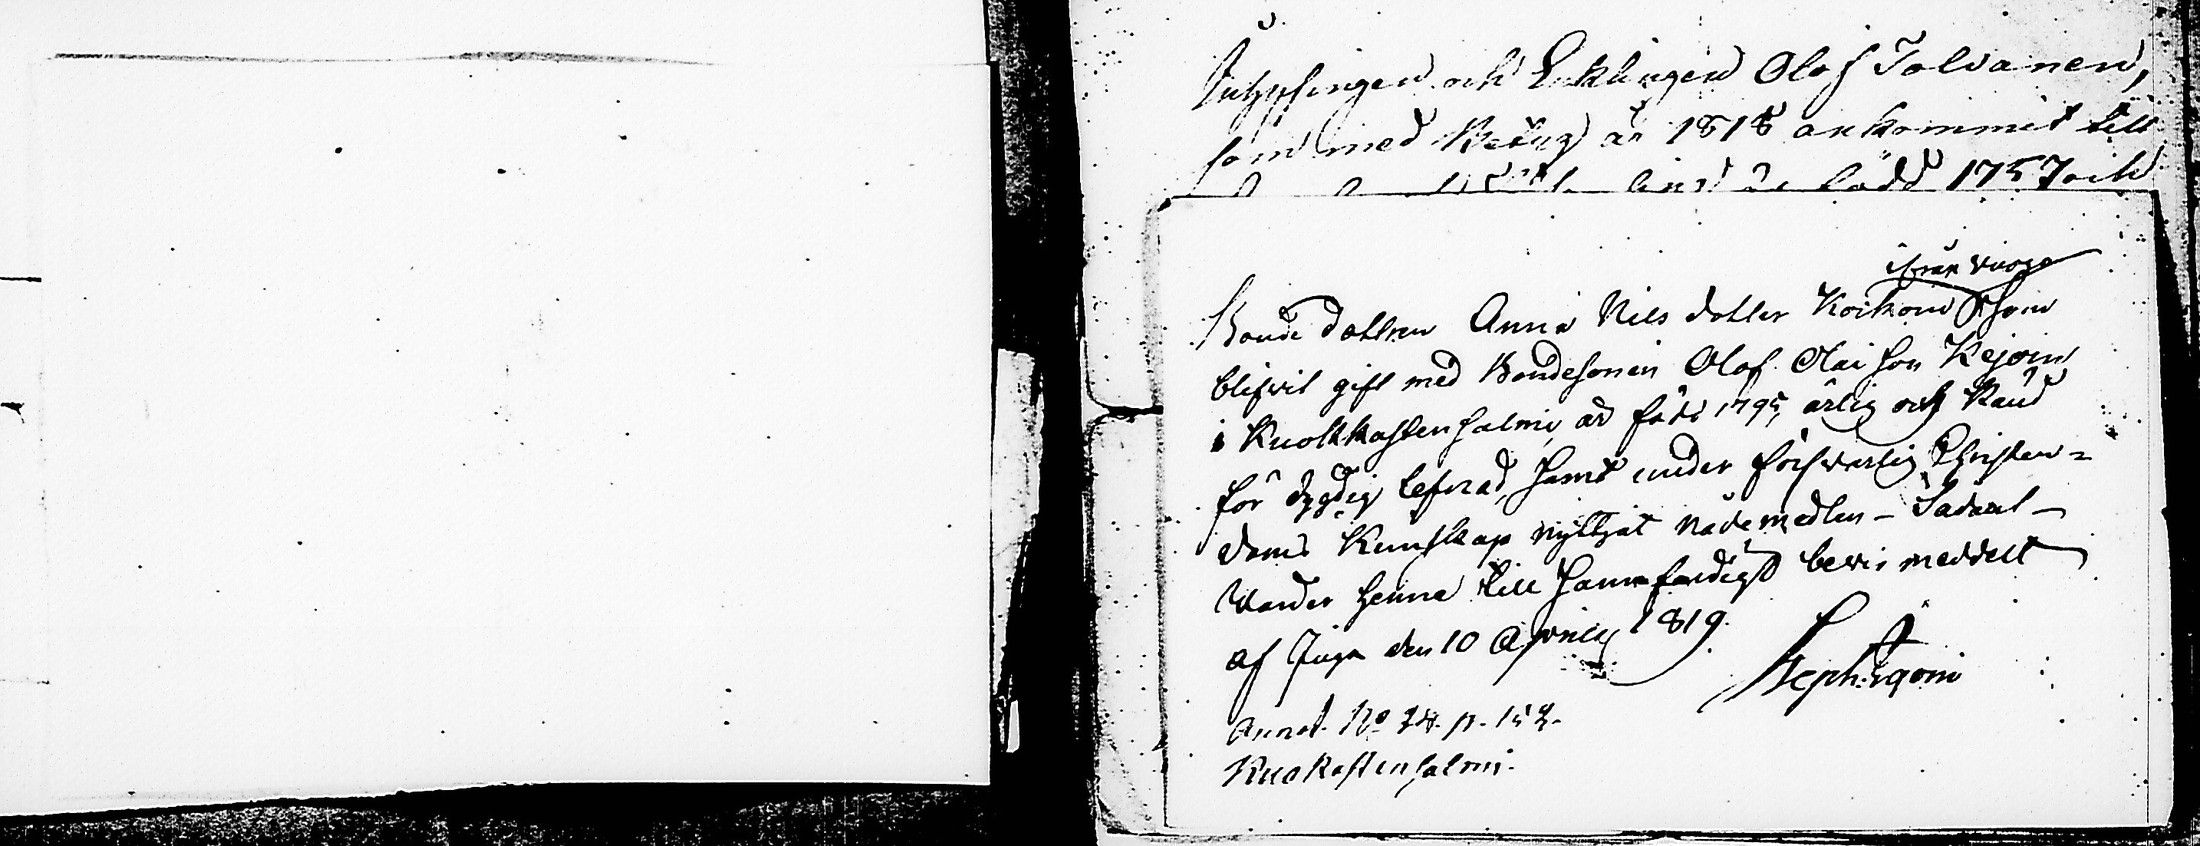 Inhysingen och Enklingen Olof Tolvanen,
som med Betyg år 1818 ankommit till
född 1757 och
ifrån Vuoge
Bonde dottren Anna Nils dotter Koikoin som
blifvit gift med Bondesonen Olof Olai son Kejoin
i Kuokkastensalmi, är född 1795, ärlig och känd
för dygdig lefnad, samt under försvarlig Christen-
doms Kunskap nyttjat Nådemedlen - Sådant
varder henne till sannfärdigt bevis meddelt
af Juga den 10 Aprilis 1819.
Steph:
Annot. No 78. p. 152.
Kuokastensalmi.